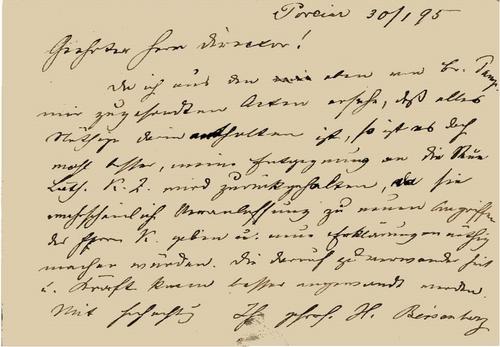 Poreiar 30/1 95
Geehrter Herr Director!
Da ich aus den eben von Br. Pamp.
mir zugesandten Acten ersehe, daß alles
Nöthige darin enthalten ist, so ist es doch
wohl besser, meine Entgegnung an die Neue
Luth. K. Z. wird zurückgehalten, da sie
wahrscheinlich Veranlassung zu neuen Angriffen
des Herrn K. geben u. neue Erklärungen nöthig
machen würden. Die darauf zu verwendende Zeit
u. Kraft kann besser angewandt werden.
Mit Hochachtg Ihr ghrs. H. Beisenherz